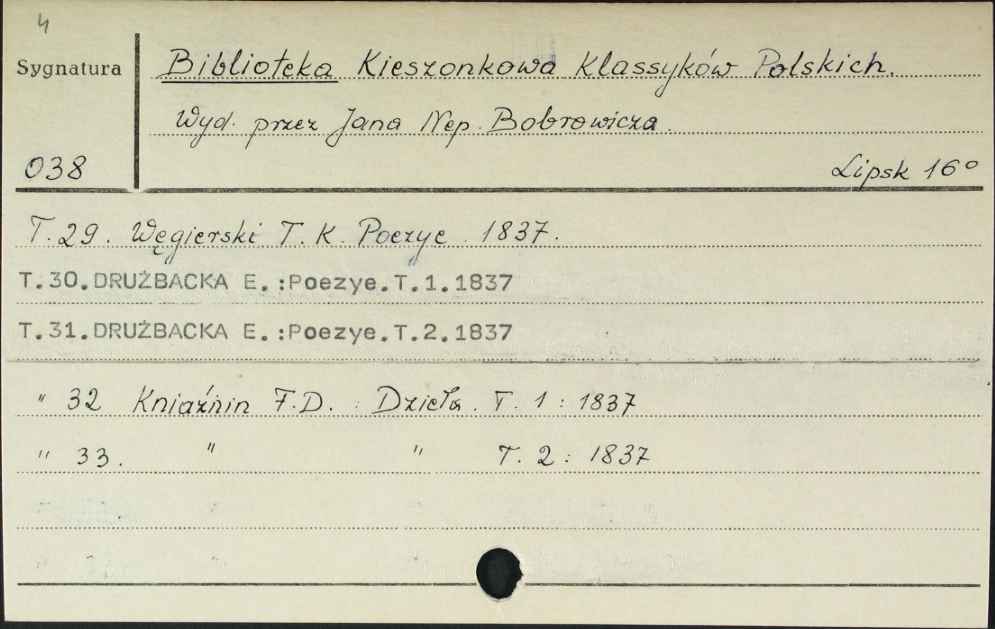 4
Sygnatura
Biblioteka Kieszonkowa Klassyków Polskich.
Wyd. przez Jana Nep. Bobrowicza.
038
Lipsk 16°
T. 29. Węgierski T. K. Poezye. 1837.
T.30.DRUŻBACKA E.:Poezye.T.1.1837
T.31.DRUŻBACKA E.:Poezye.T.2.1837
" 32 Kniaźnin F.D. : Dzieła. T. 1 : 1837
" 33. " " T. 2 : 1837